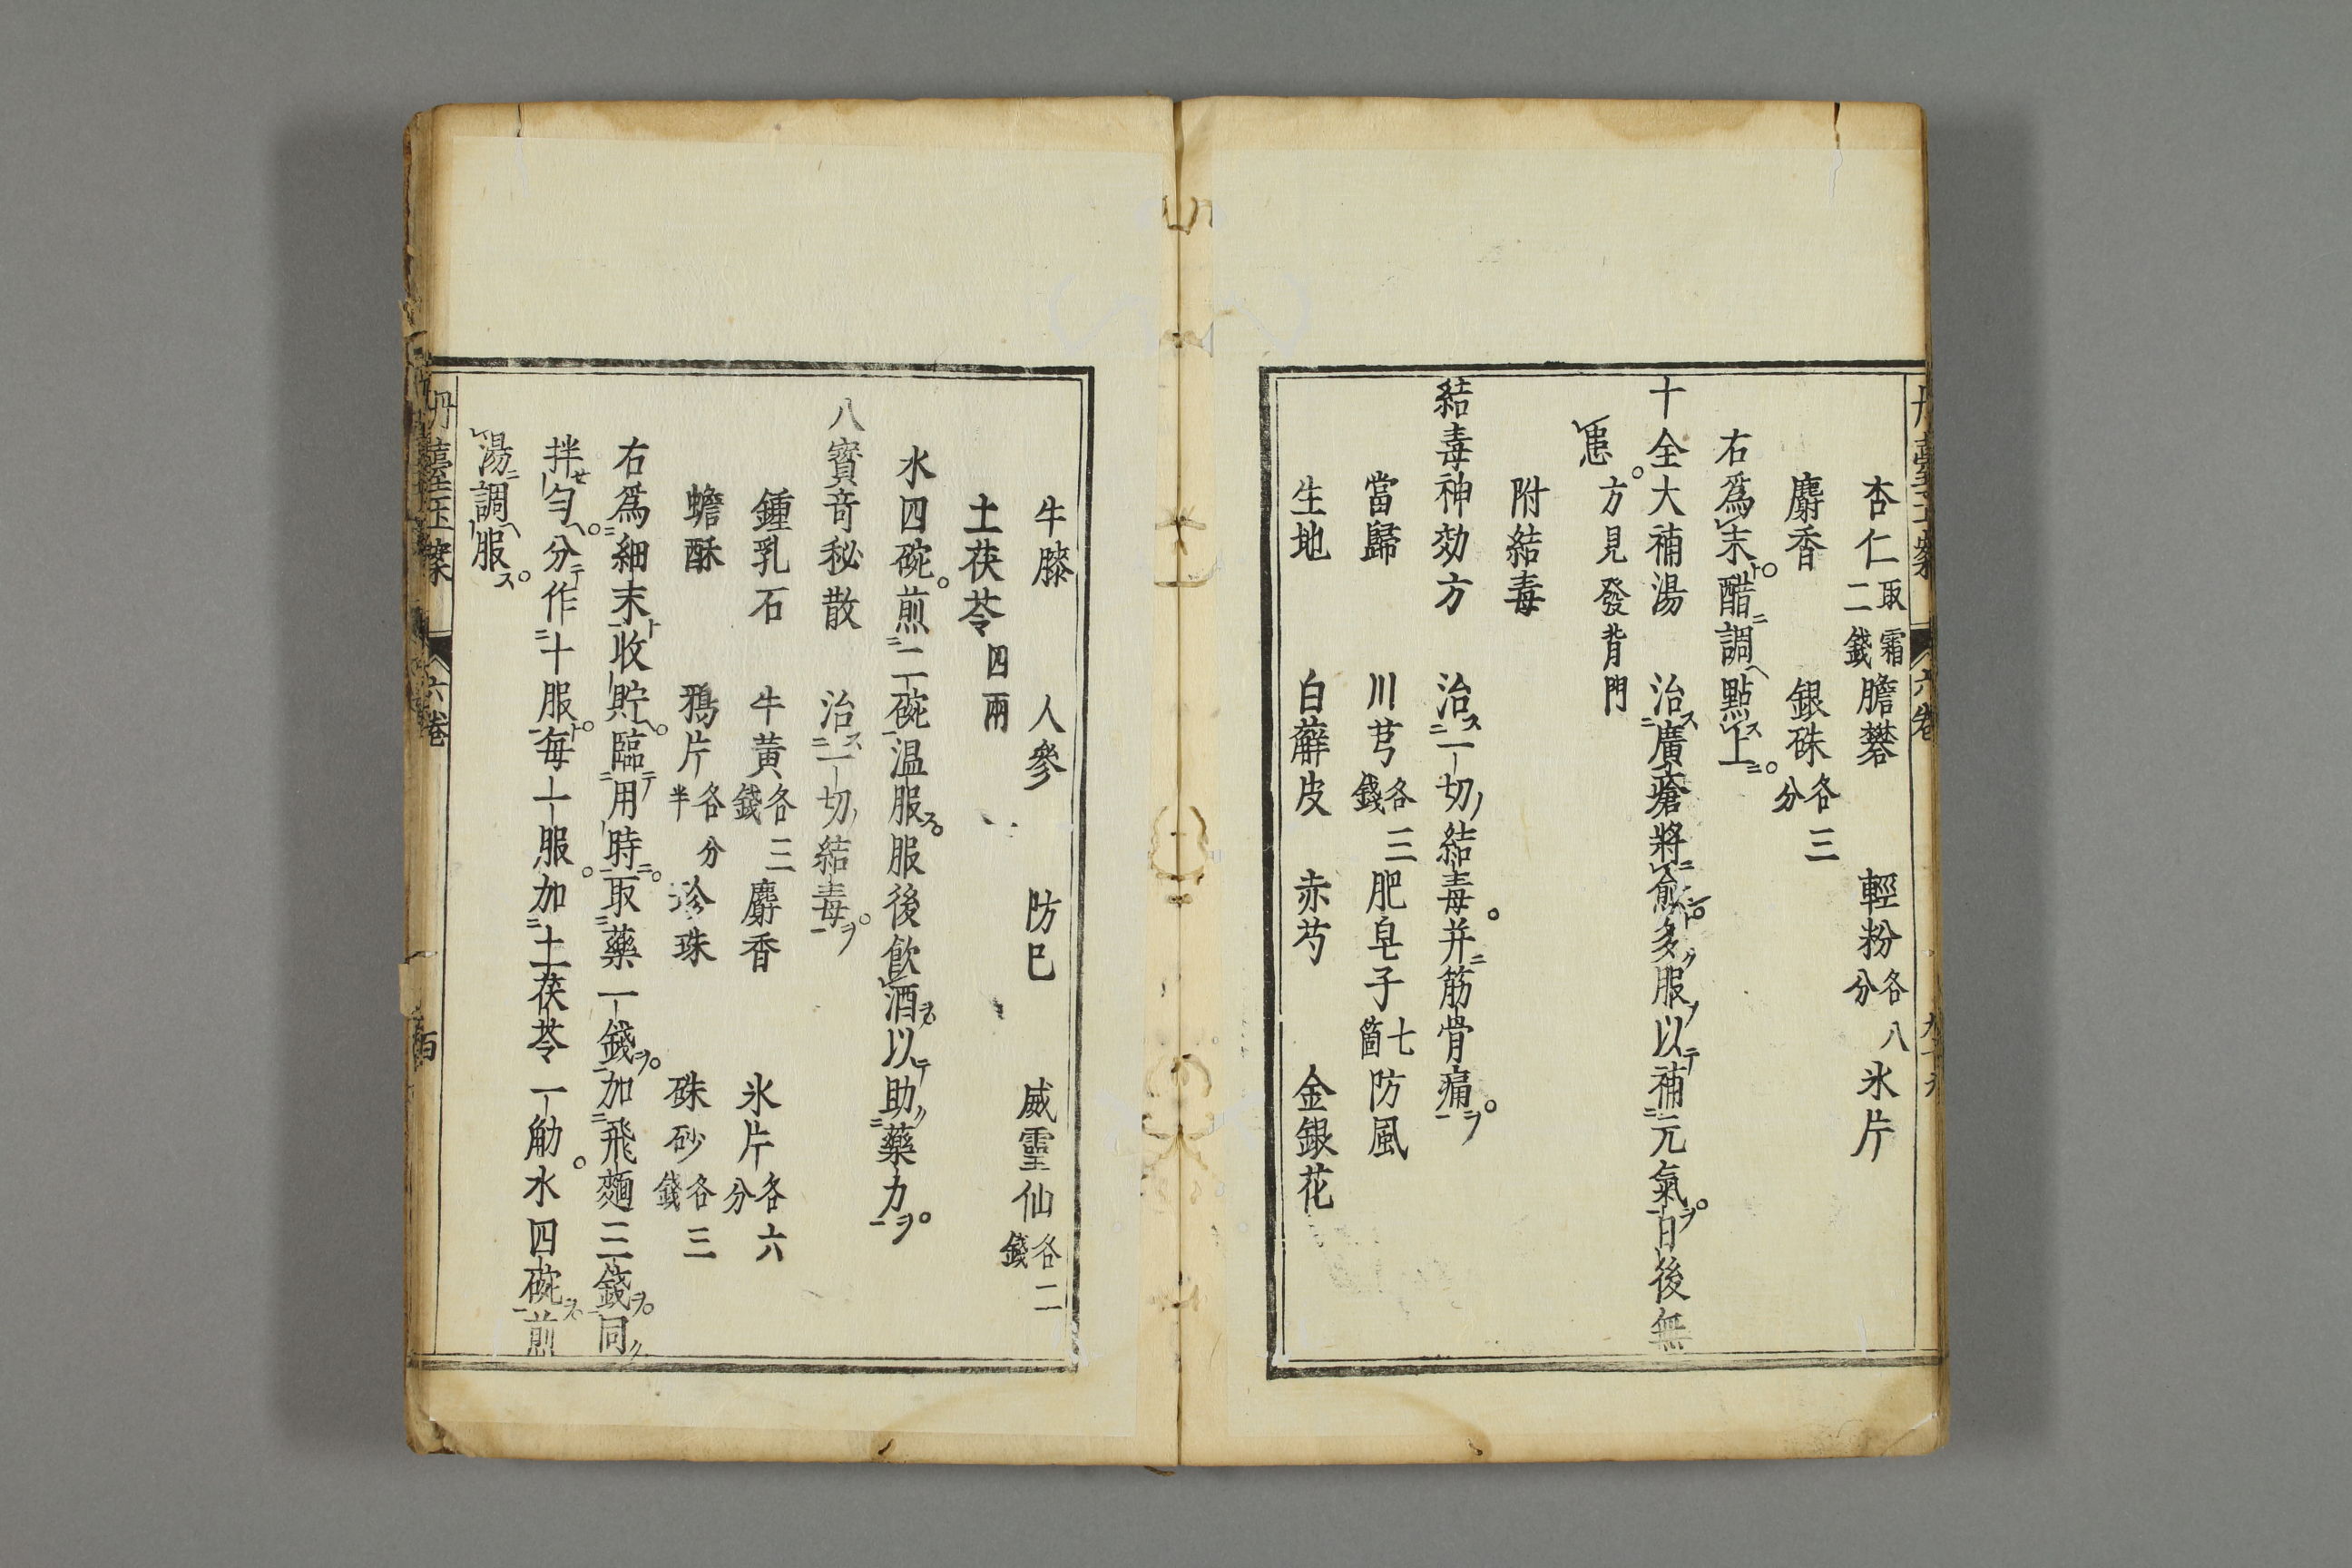 杏仁取霜二錢 膽礬 輕粉各八分 氷片
麝香 銀硃各三分
右爲末醋調點上
十全大補湯 治廣瘡將愈多服以補元氣日後無
患方見發背門
附結毒
結毒神効方 治一切結毒并筋骨痛
當歸 川芎各三錢 肥皂子七箇 防風
生地 白蘚皮 赤芍 金銀花
牛膝 人參 防巳 威靈仙各二錢
土茯苓四兩
水四碗煎二碗温服服後飲酒以助藥力
八寳竒秘散 治一切結毒
鍾乳石 牛黄各三錢 麝香 氷片各六分
蟾酥 鴉片各分半 珍珠 硃砂各三錢
右爲細末收貯臨用時取藥一錢加飛麵三錢同
拌勻分作十服每一服加土茯苓一觔水四碗煎
湯調服
丹臺玉案 六卷 百